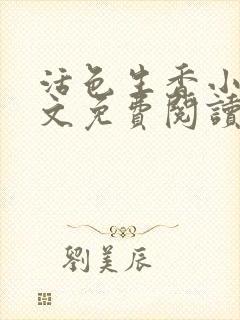 活色生香小
文免費閱讀
劉美辰